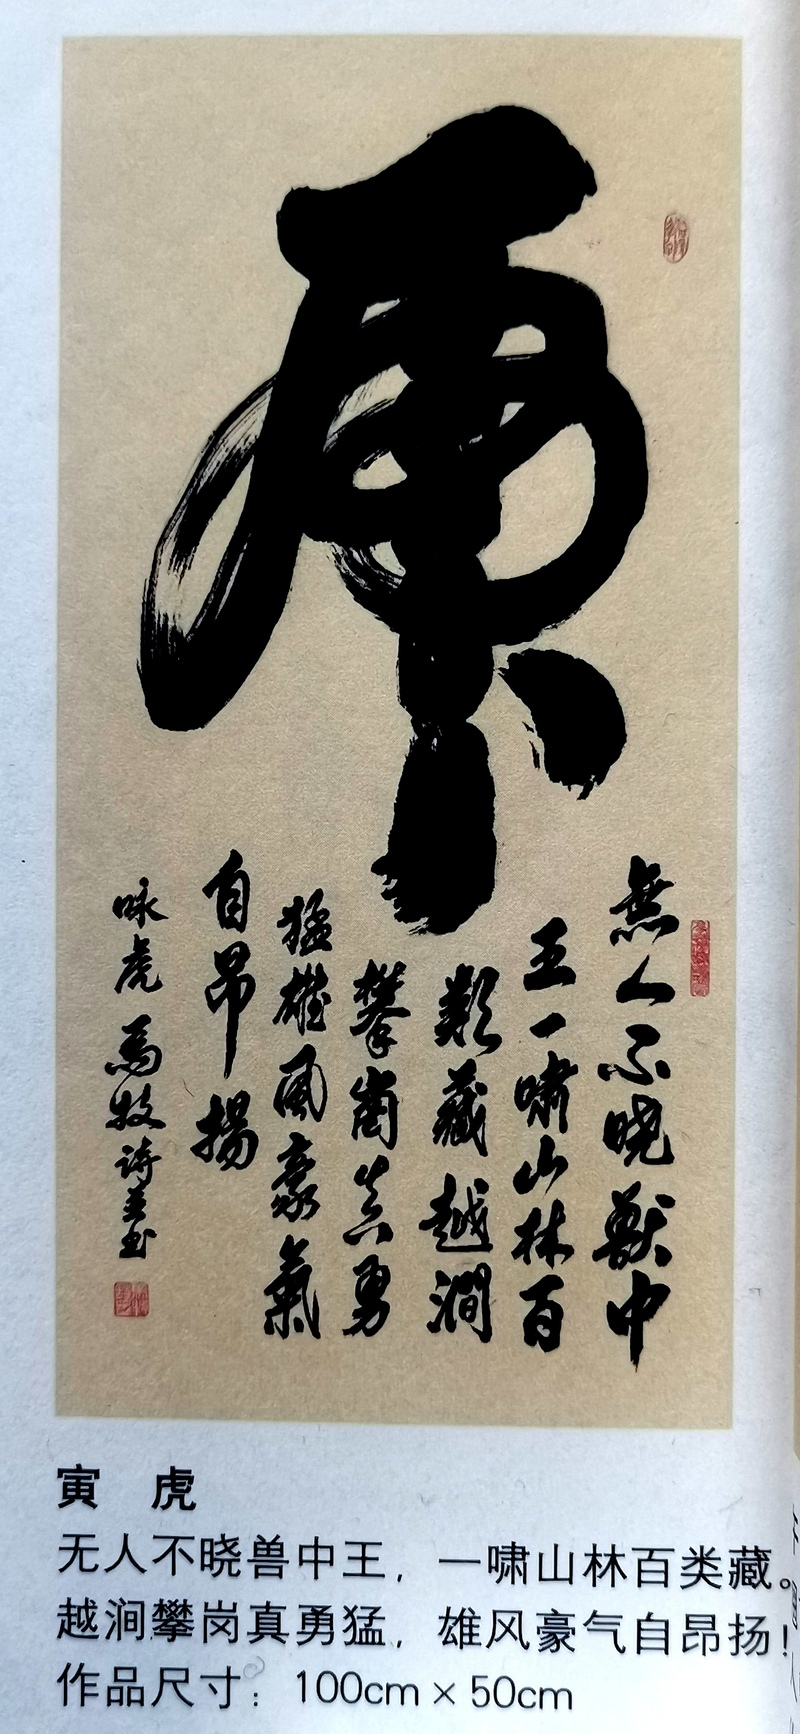 虎
無人不晓獸中
王一嘯山林百
類藏越澗
攀崗真勇
猛雄風豪氣
自昂揚
咏虎 馬牧诗并书
寅 虎
无人不晓兽中王，一啸山林百类藏。
越涧攀岗真勇猛，雄风豪气自昂扬！
作品尺寸：100cm×50cm